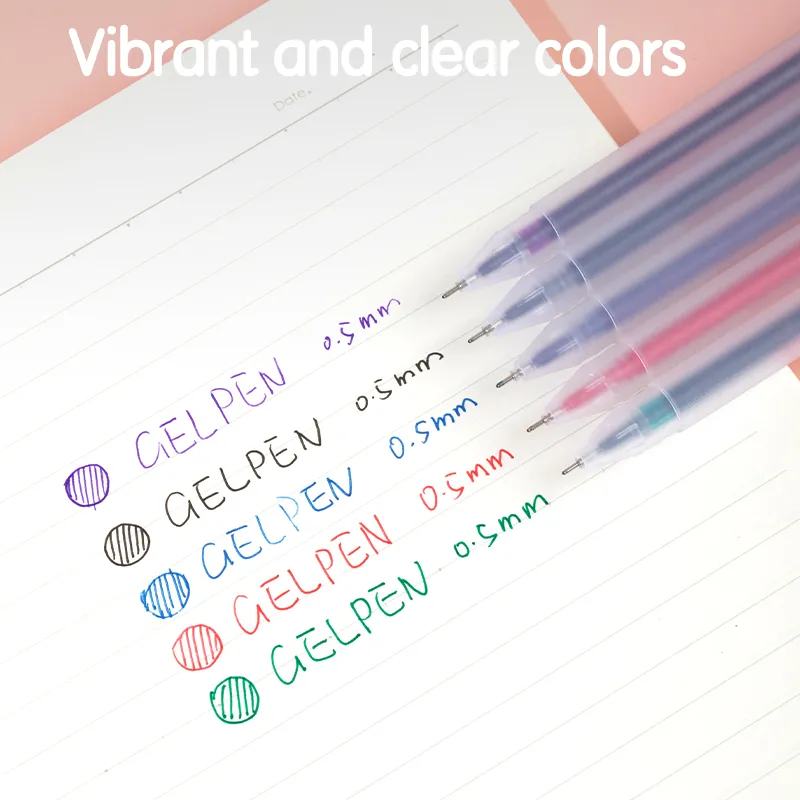 Vibrant and clear colors
Date.
GELPEN 0.5mm
GELPEN 0.5mm
GELPEN 0.5mm
GELPEN 0.5mm
GELPEN 0.5mm